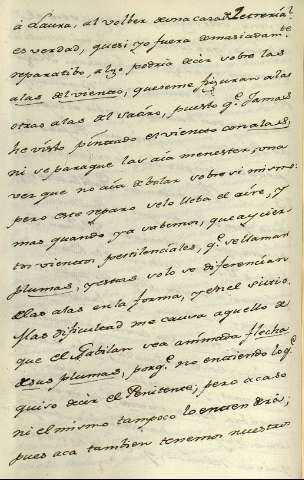 à Laura, al volber de una casa de Recreaziõ.
es verdad, que si yo fuera demasiadamte.
reparatibo, algo podria decir sobre las
alas del viento, que se me figuran a las
otras alas del Sacro, puesto q.e Jamas
he visto pintado el viento con alas,
ni se para que las avia menester, una
ver que no avia de bolar sobre si mismo;
pero este reparo se lo lleba el aire, y
mas quando ya sabemos, que ay cier-
tos vientos pestilenciales, q.e se llaman
plumas, y estas solo se diferencian
de las alas en la forma, y en el sitio.
Mas dificultad me causa aquello de
que el Gabilan sea animada flecha
de sus plumas, porq.e no entiendo lo q.e
quiso decir el Penitente; pero acaso
ni el mismo tampoco lo entenderá;
pues aca tambien tenemos nuestros